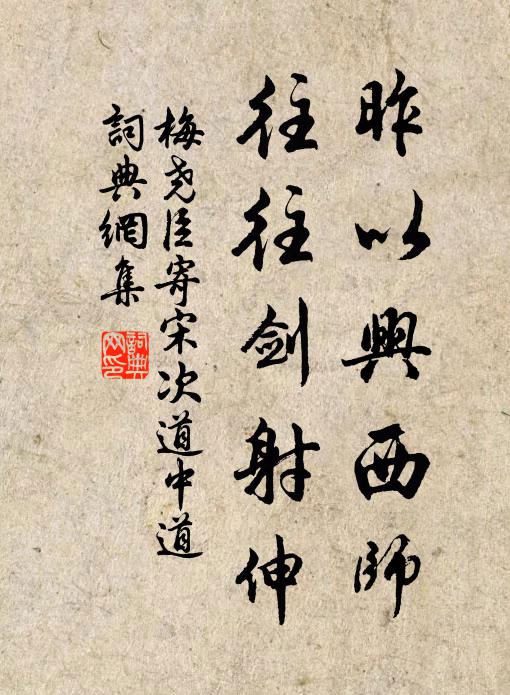 昨以興西師
往往劍射伸
梅尧臣寄宋次道中道
詞典網集
詞典網印